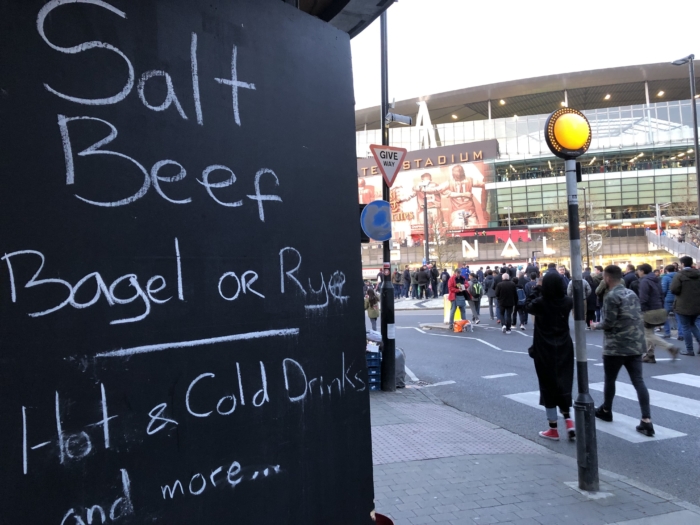 Salt
Beef
Bagel or Rye
Hot & Cold Drinks
and more...
GIVE
WAY
TES STADIUM
ENAL